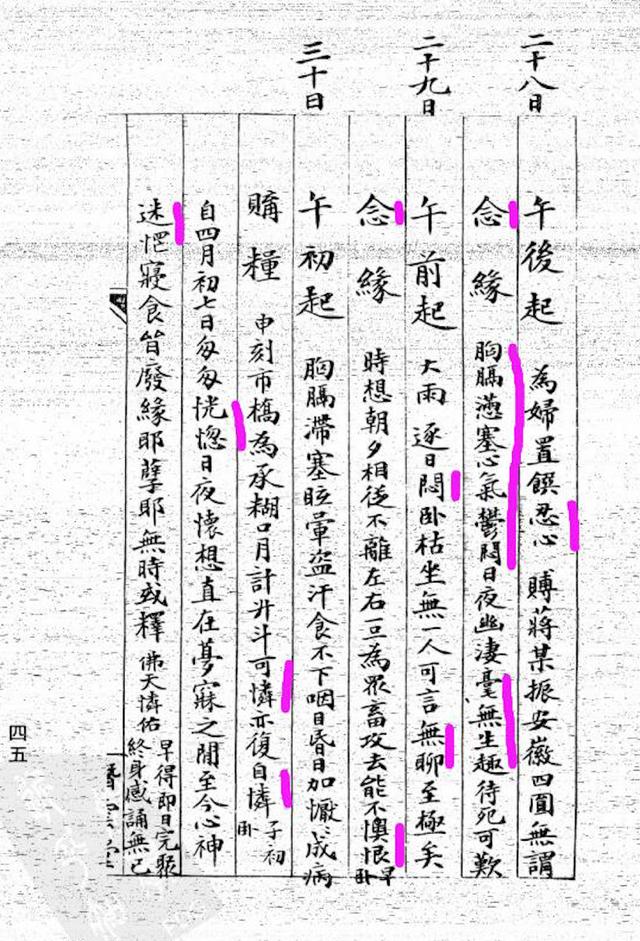 二十八日
午後起 為婦置饌忍心 賻蔣某振安徽四圓無謂
念緣 胸膈懣塞心氣鬱悶日夜幽淒毫無生趣待死可歎
二十九日
午前起 大雨逐日悶臥枯坐無一人可言無聊至極矣
念緣 時想朝夕相從不離左右一旦為眾畜攻去能不懊恨 早臥
三十日
午初起 胸膈滯塞眩暈盜汗食不下咽日昏日加懨懨成病
購糧 申刻市橋為承糊口月計升斗可憐亦復自憐 子初臥
自四月初七日匆匆恍惚日夜懷想直在夢寐之間至今心神
迷惘寢食皆廢緣耶孽耶無時或釋 佛天憐佑
早得即日完聚
終身感誦無已
四五